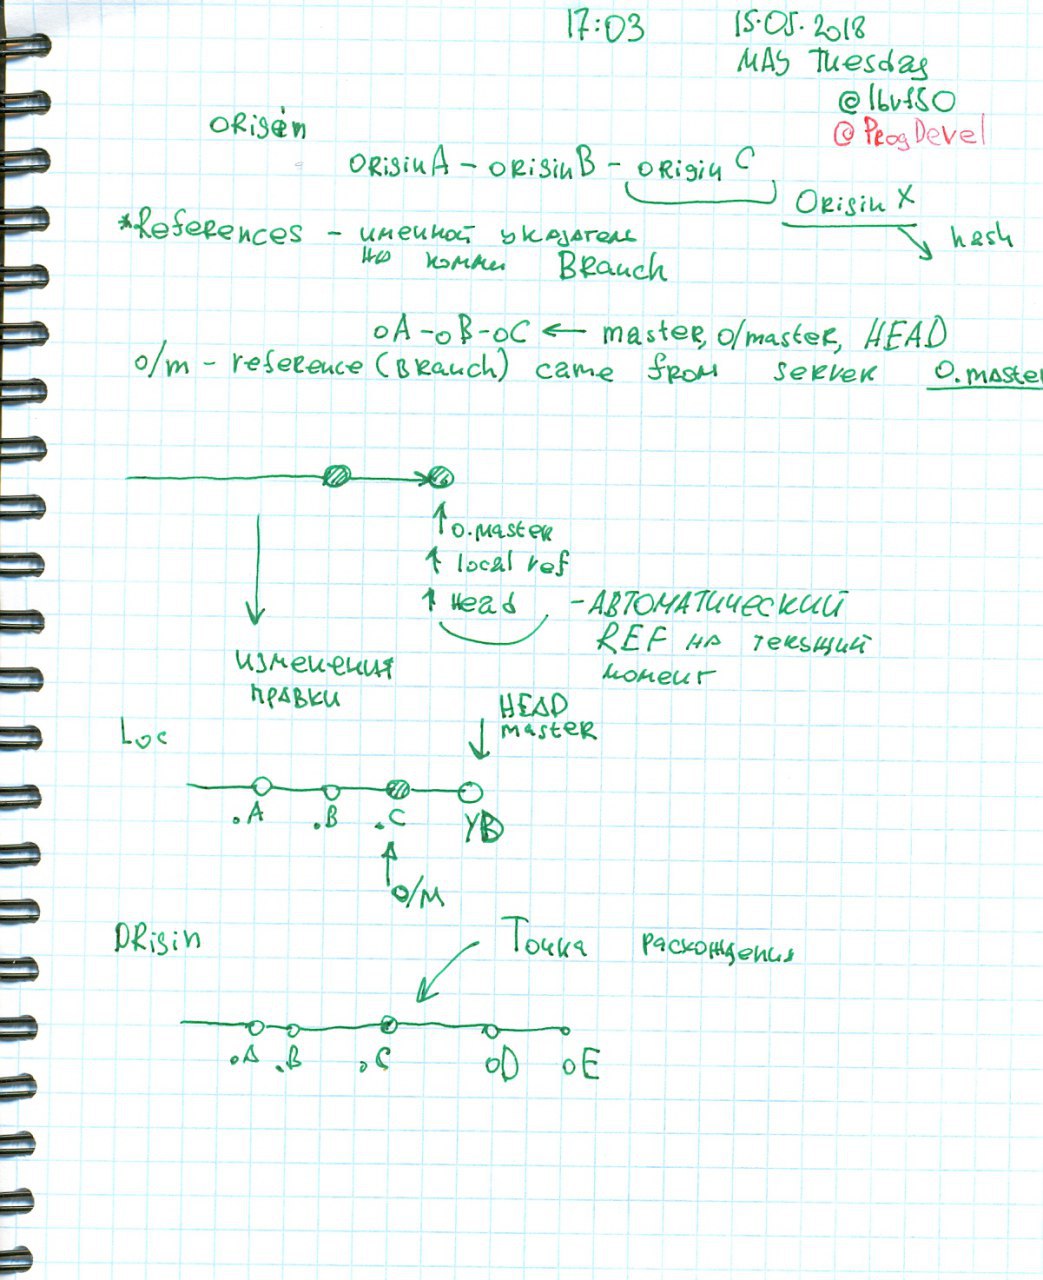 17:03 15.05.2018
MAY Tuesday
@lbvf50
@ProgDevel
origin
originA – originB – origin C
Origin X
hash
*References – именной указатель
на комми Branch
oA–oB–oC ← master, o/master, HEAD
o/m – reference (Branch) came from server O.master
↑ o.master
↑ local ref
↑ Head – АВТОМАТИЧЕСКИЙ
REF на текущий
момент
изменения
правки
HEAD
master
Loc
.A .B .C
O/M
Origin
Точка расхождения
.A .B .C oD oE